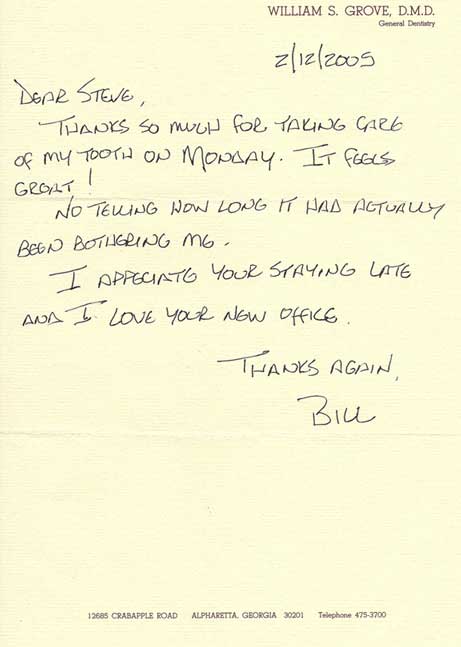 WILLIAM S. GROVE, D.M.D.
General Dentistry
2/12/2005
DEAR STEVE,
THANKS SO MUCH FOR TAKING CARE
OF MY TOOTH ON MONDAY. IT FEELS
GREAT!
NO TELLING HOW LONG IT HAD ACTUALLY
BEEN BOTHERING ME.
I APPECIATE YOUR STAYING LATE
AND I LOVE YOUR NEW OFFICE.
THANKS AGAIN,
BILL
12685 CRABAPPLE ROAD ALPHARETTA, GEORGIA 30201 Telephone 475-3700